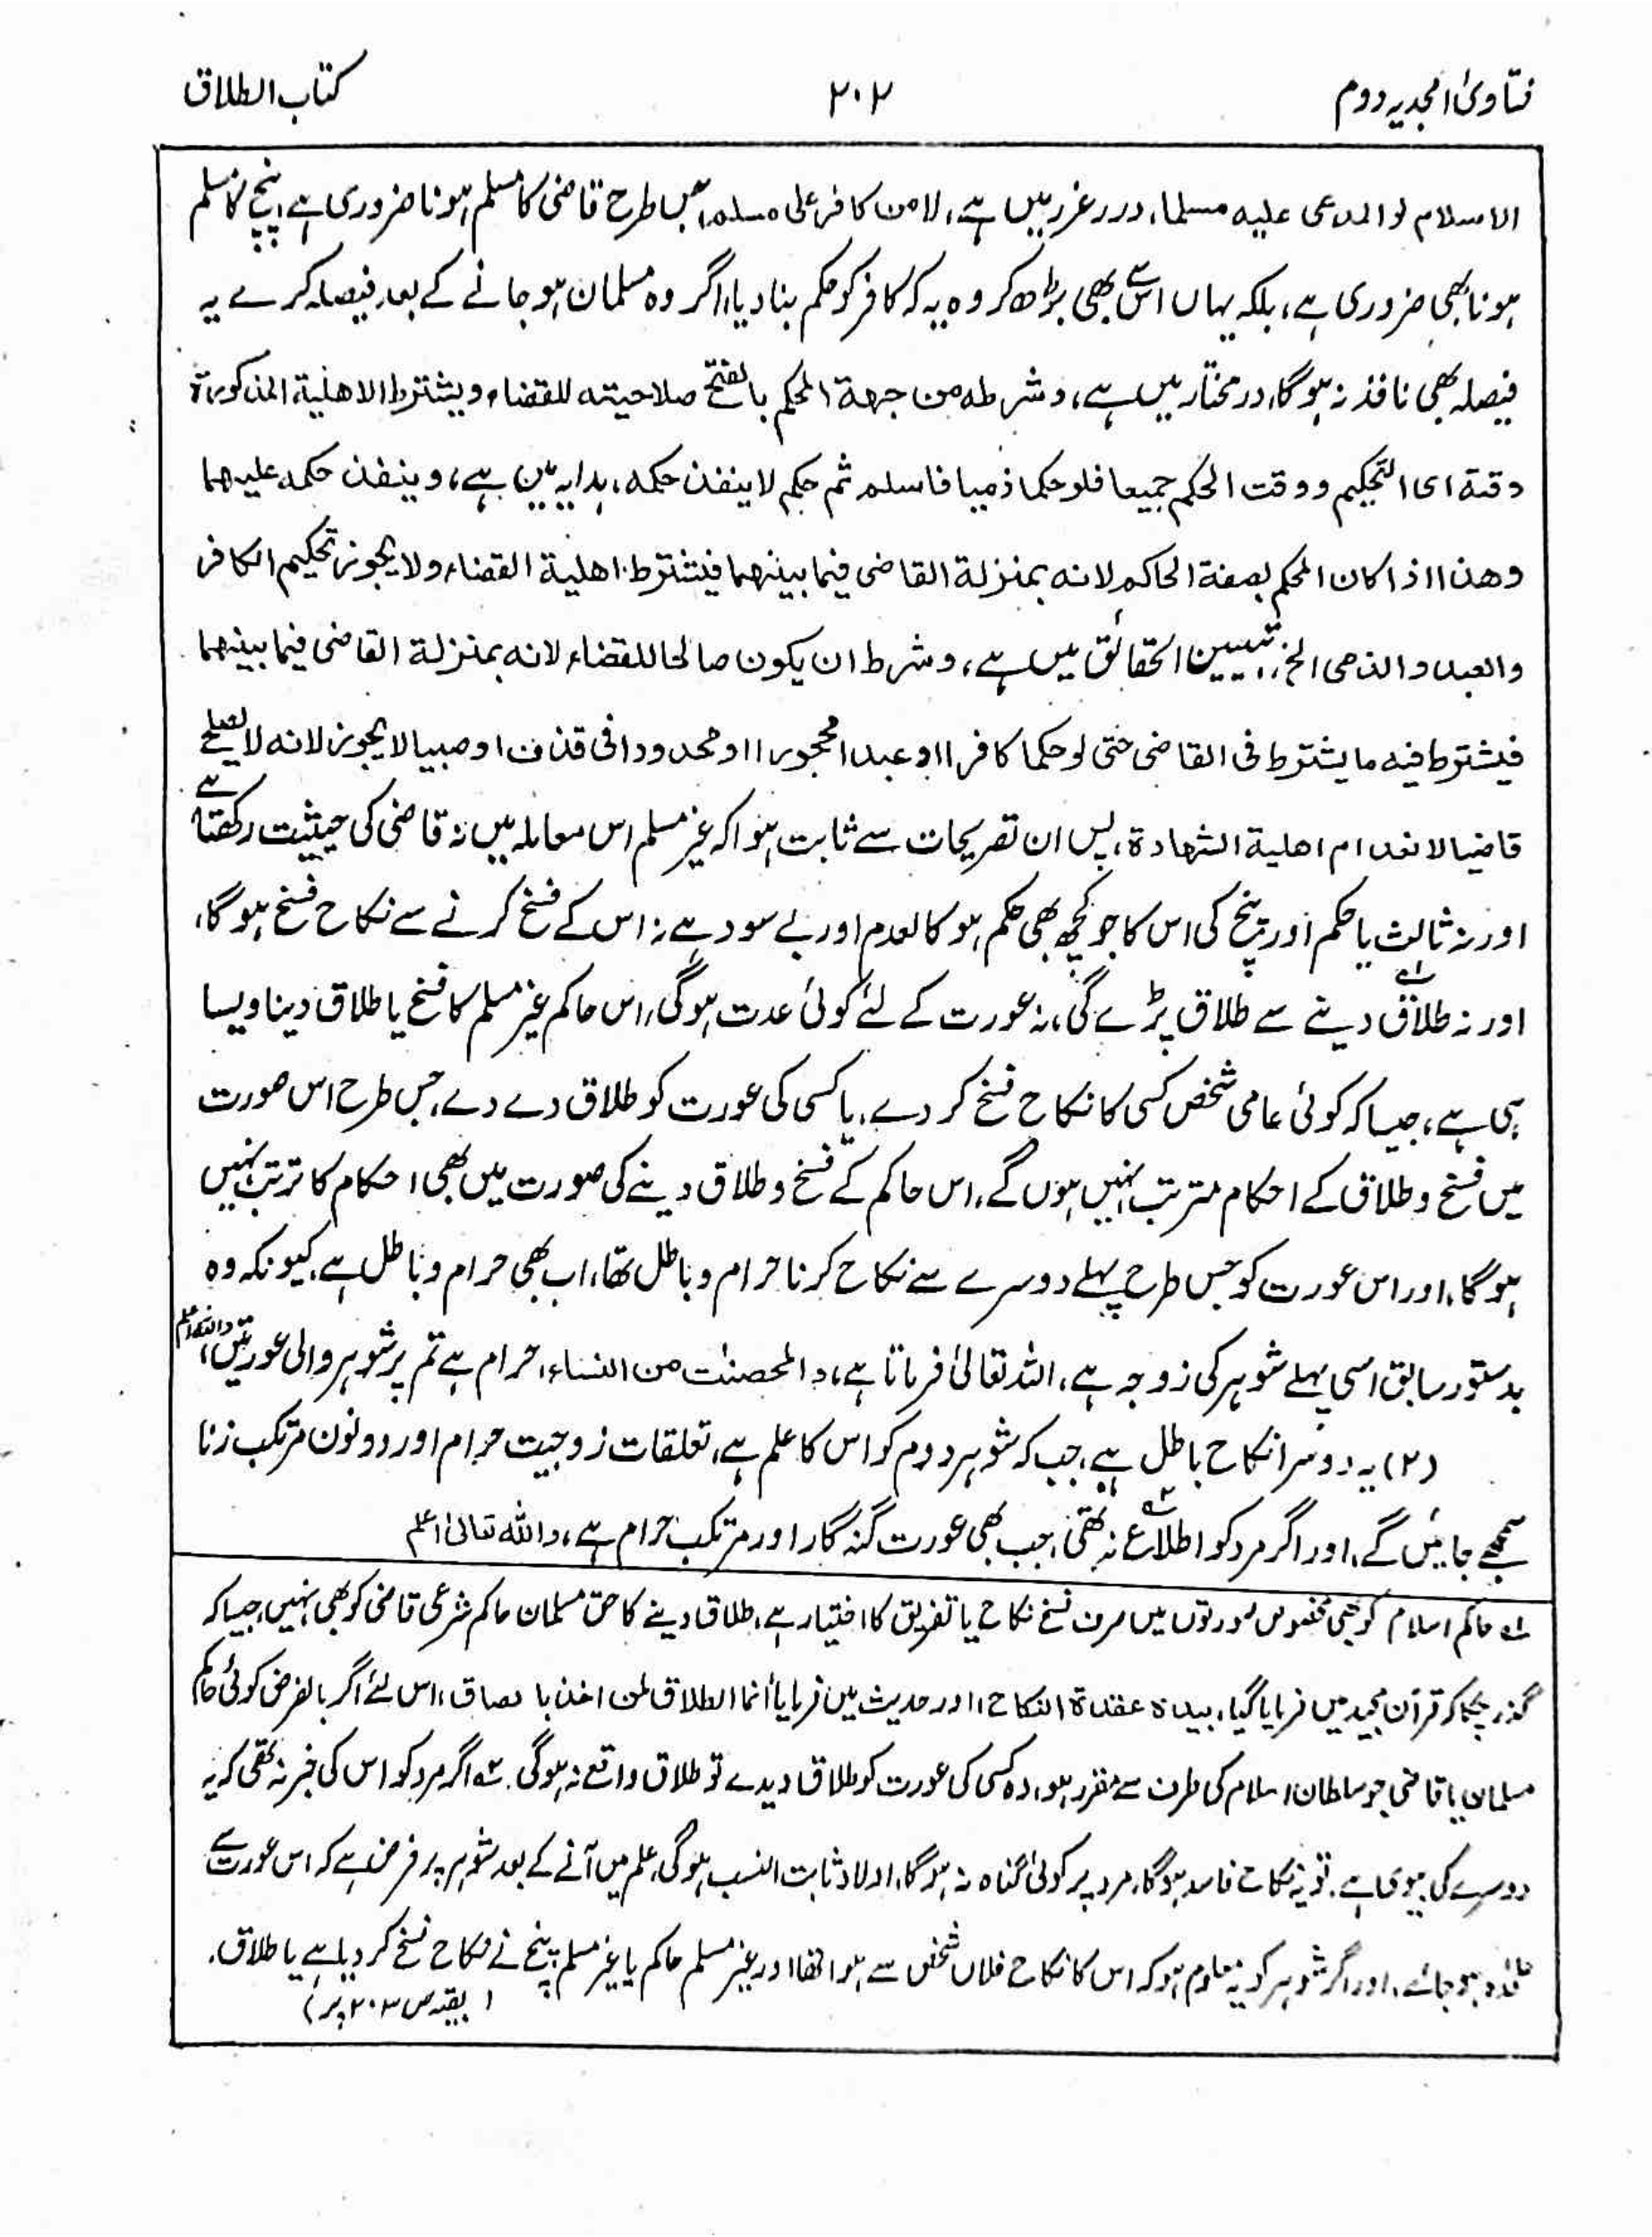 فتاویٰ امجدیہ دوم
۲۰۲
کتاب الطلاق
الاسلام لو المدعی علیہ مسلما، درر غرر میں ہے، لا من کافر علی مسلم، جس طرح قاضی کا مسلم ہونا ضروری ہے پنچ کا مسلم
ہونا بھی ضروری ہے، بلکہ یہاں اس سے بھی بڑھ کر وہ یہ کہ کافر کو حکم بنا دیا، اگر وہ مسلمان ہو جانے کے بعد فیصلہ کرے یہ
فیصلہ بھی نافذ نہ ہوگا، درمختار میں ہے، وشرطہ من جہۃ المحکم بالفتح صلاحیتہ للقضاء ویشترط الاھلیۃ المذکورۃ
وقتہ ای التحکیم ووقت الحکم جمیعا فلو حکما ذمیا فاسلم ثم حکم لا ینفذ حکمہ، ہدایہ میں ہے، وینفذ حکمہ علیھما
وھذا اذا کان المحکم بصفۃ الحاکم لانہ بمنزلۃ القاضی فیما بینھما فیشترط اھلیۃ القضاء ولا یجوز تحکیم الکافر
والعبد والذمی الخ، تبیین الحقائق میں ہے، وشرط ان یکون صالحا للقضاء لانہ بمنزلۃ القاضی فیما بینھما
فیشترط فیہ ما یشترط فی القاضی حتی لو حکما کافرا او عبدا محجورا او محدودا فی قذف او صبیا لا یجوز لانہ لا یصلح
قاضیا لانعدام اھلیۃ الشھادۃ، پس ان تصریحات سے ثابت ہوا کہ غیر مسلم اس معاملہ میں نہ قاضی کی حیثیت رکھتا ہے
اور نہ ثالث یا حکم اور پنچ کی اس کا جو کچھ بھی حکم ہو کالعدم اور بے سود ہے نہ اس کے فسخ کرنے سے نکاح فسخ ہوگا،
اور نہ طلاق ۱؎ دینے سے طلاق پڑے گی، نہ عورت کے لئے کوئی عدت ہوگی، اس حاکم غیر مسلم کا فسخ یا طلاق دینا ویسا
ہی ہے، جیسا کہ کوئی عامی شخص کسی کا نکاح فسخ کر دے، یا کسی کی عورت کو طلاق دے دے، جس طرح اس صورت
میں فسخ و طلاق کے احکام مترتب نہیں ہوں گے، اس حاکم کے فسخ و طلاق دینے کی صورت میں بھی احکام کا ترتب نہیں
ہوگا، اور اس عورت کو جس طرح پہلے دوسرے سے نکاح کرنا حرام و باطل تھا، اب بھی حرام و باطل ہے، کیونکہ وہ
بدستور سابق اسی پہلے شوہر کی زوجہ ہے، اللہ تعالیٰ فرماتا ہے، والمحصنٰت من النساء، حرام ہے تم پر شوہر والی عورتیں، واللہ اعلم
(۲) یہ دوسرا نکاح باطل ہے، جب کہ شوہر دوم کو اس کا علم ہے، تعلقات زوجیت حرام اور دونوں مرتکب زنا
سمجھے جائیں گے، اور اگر مرد کو اطلاع ۲؎ نہ تھی، جب بھی عورت گنہ گار اور مرتکب حرام ہے، واللہ تعالیٰ اعلم
۱؎ حاکم اسلام کو بھی مخصوص صورتوں میں صرف فسخ نکاح یا تفریق کا اختیار ہے، طلاق دینے کا حق مسلمان حاکم شرعی قاضی کو بھی نہیں، جیسا کہ
گذر چکا کہ قرآن مجید میں فرمایا گیا، بیدہ عقدۃ النکاح، اور حدیث میں فرمایا انما الطلاق لمن اخذ بالساق، اس لئے اگر بالفرض کوئی حاکم
مسلمان یا قاضی جو سلطان اسلام کی طرف سے مقرر ہو، وہ کسی کی عورت کو طلاق دیدے تو طلاق واقع نہ ہوگی. ۲؎ اگر مرد کو اس کی خبر نہ تھی کہ یہ
دوسرے کی بیوی ہے، تو یہ نکاح فاسد ہوگا، مرد پر کوئی گناہ نہ ہوگا، اولاد ثابت النسب ہوگی، علم میں آنے کے بعد شوہر پر فرض ہے کہ اس عورت سے
علٰحدہ ہو جائے، اور اگر شوہر کو یہ معلوم ہو کہ اس کا نکاح فلاں شخص سے ہوا تھا اور غیر مسلم حاکم یا غیر مسلم پنچ نے نکاح فسخ کر دیا ہے یا طلاق.
(بقیہ ص ۲۰۳ پر)